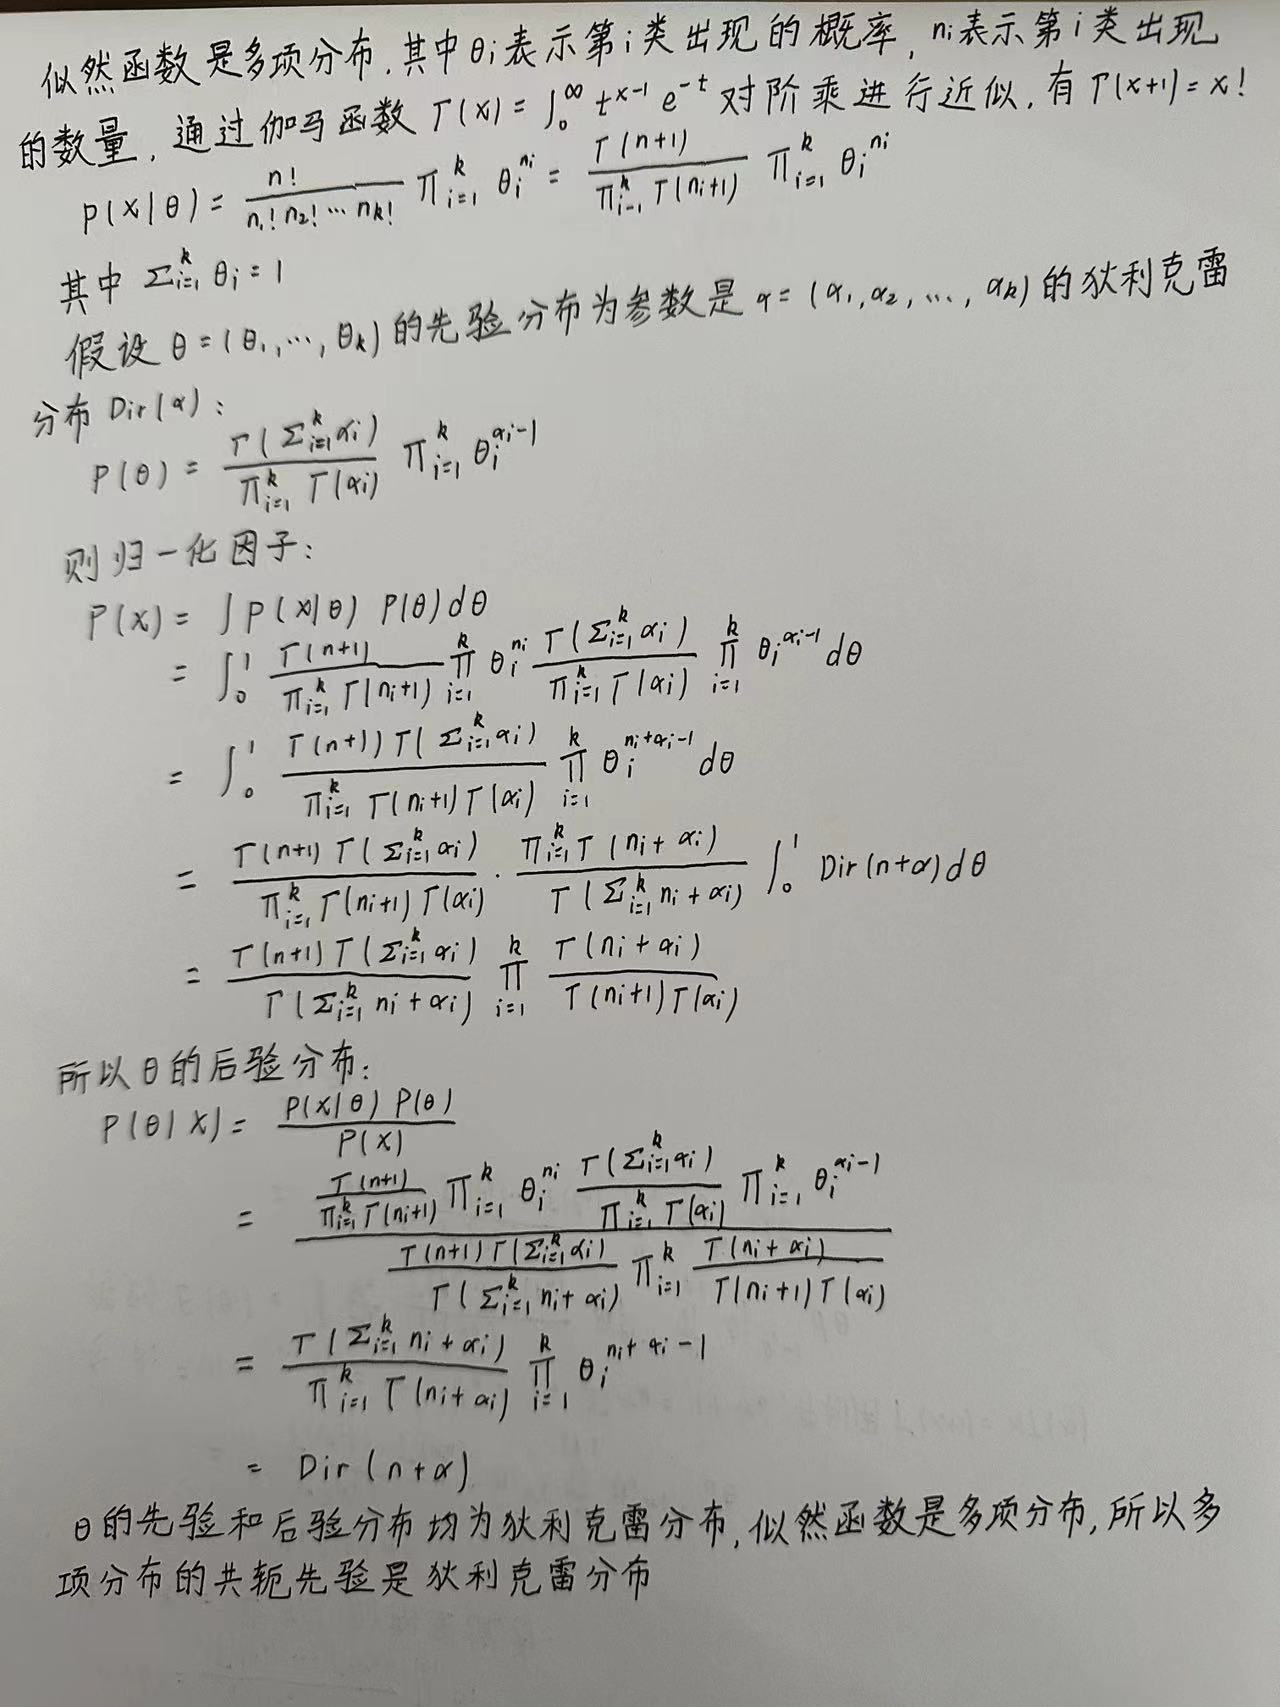 似然函数是多项分布,其中θi表示第i类出现的概率,ni表示第i类出现
的数量,通过伽马函数 Γ(x) = ∫₀^∞ t^{x-1} e^{-t} 对阶乘进行近似,有Γ(x+1)=x!
P(X|θ) = \frac{n!}{n₁!n₂!⋯n_k!} ∏_{i=1}^k θ_i^{n_i} = \frac{Γ(n+1)}{∏_{i=1}^k Γ(n_i+1)} ∏_{i=1}^k θ_i^{n_i}
其中 Σ_{i=1}^k θ_i = 1
假设 θ=(θ₁,⋯,θ_k)的先验分布为参数是 α=(α₁,α₂,⋯,α_k)的狄利克雷
分布 Dir(α):
P(θ) = \frac{Γ(Σ_{i=1}^k α_i)}{∏_{i=1}^k Γ(α_i)} ∏_{i=1}^k θ_i^{α_i-1}
则归一化因子:
P(X) = ∫P(X|θ) P(θ)dθ
= ∫₀^1 \frac{Γ(n+1)}{∏_{i=1}^k Γ(n_i+1)} ∏_{i=1}^k θ_i^{n_i} \frac{Γ(Σ_{i=1}^k α_i)}{∏_{i=1}^k Γ(α_i)} ∏_{i=1}^k θ_i^{α_i-1} dθ
= ∫₀^1 \frac{Γ(n+1)Γ(Σ_{i=1}^k α_i)}{∏_{i=1}^k Γ(n_i+1)Γ(α_i)} ∏_{i=1}^k θ_i^{n_i+α_i-1} dθ
= \frac{Γ(n+1)Γ(Σ_{i=1}^k α_i)}{∏_{i=1}^k Γ(n_i+1)Γ(α_i)} · \frac{∏_{i=1}^k Γ(n_i+α_i)}{Γ(Σ_{i=1}^k n_i+α_i)} ∫₀^1 Dir(n+α)dθ
= \frac{Γ(n+1)Γ(Σ_{i=1}^k α_i)}{Γ(Σ_{i=1}^k n_i+α_i)} ∏_{i=1}^k \frac{Γ(n_i+α_i)}{Γ(n_i+1)Γ(α_i)}
所以θ的后验分布:
P(θ|X) = \frac{P(X|θ)P(θ)}{P(X)}
= \frac{\frac{Γ(n+1)}{∏_{i=1}^k Γ(n_i+1)} ∏_{i=1}^k θ_i^{n_i} \frac{Γ(Σ_{i=1}^k α_i)}{∏_{i=1}^k Γ(α_i)} ∏_{i=1}^k θ_i^{α_i-1}}{\frac{Γ(n+1)Γ(Σ_{i=1}^k α_i)}{Γ(Σ_{i=1}^k n_i+α_i)} ∏_{i=1}^k \frac{Γ(n_i+α_i)}{Γ(n_i+1)Γ(α_i)}}
= \frac{Γ(Σ_{i=1}^k n_i+α_i)}{∏_{i=1}^k Γ(n_i+α_i)} ∏_{i=1}^k θ_i^{n_i+α_i-1}
= Dir(n+α)
θ的先验和后验分布均为狄利克雷分布,似然函数是多项分布,所以多
项分布的共轭先验是狄利克雷分布